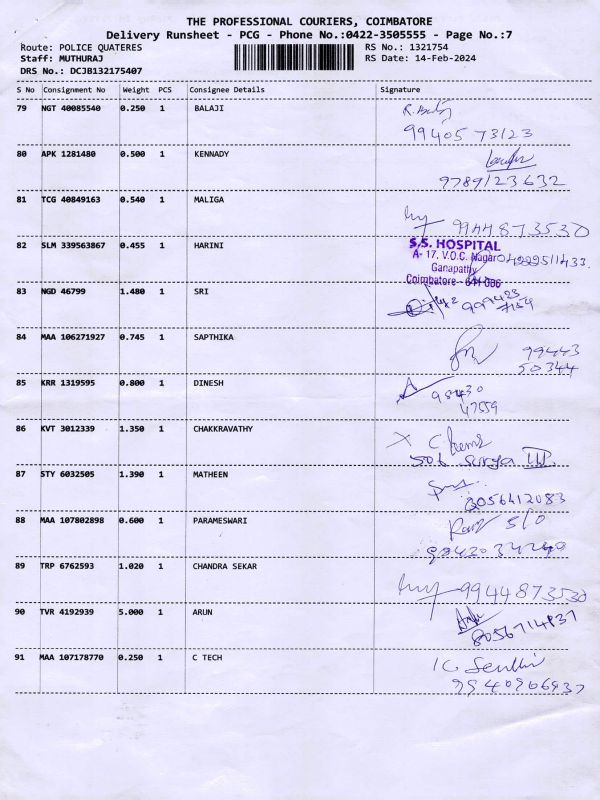 THE PROFESSIONAL COURIERS, COIMBATORE
Delivery Runsheet - PCG - Phone No.:0422-3505555 - Page No.:7
Route: POLICE QUATERES RS No.: 1321754
Staff: MUTHURAJ RS Date: 14-Feb-2024
DRS No.: DCJB132175407
S No Consignment No Weight PCS Consignee Details Signature
79 NGT 40085540 0.250 1 BALAJI
99405 73123
80 APK 1281480 0.500 1 KENNADY
9789123632
81 TCG 40849163 0.540 1 MALIGA
9944873530
82 SLM 339563867 0.455 1 HARINI
S.S. HOSPITAL
A- 17, V.O.C. Nagar
Ganapathy
Coimbatore - 641 006
04222511433
83 NGD 46799 1.480 1 SRI
84 MAA 106271927 0.745 1 SAPTHIKA
99443
50344
85 KRR 1319595 0.800 1 DINESH
98430
47559
86 KVT 3012339 1.350 1 CHAKKRAVATHY
506 Surya
87 STY 6032505 1.390 1 MATHEEN
8056412083
88 MAA 107802898 0.600 1 PARAMESWARI
S/O
89 TRP 6762593 1.020 1 CHANDRA SEKAR
9944873530
90 TVR 4192939 5.000 1 ARUN
8056714837
91 MAA 107178770 0.250 1 C TECH
9540906937